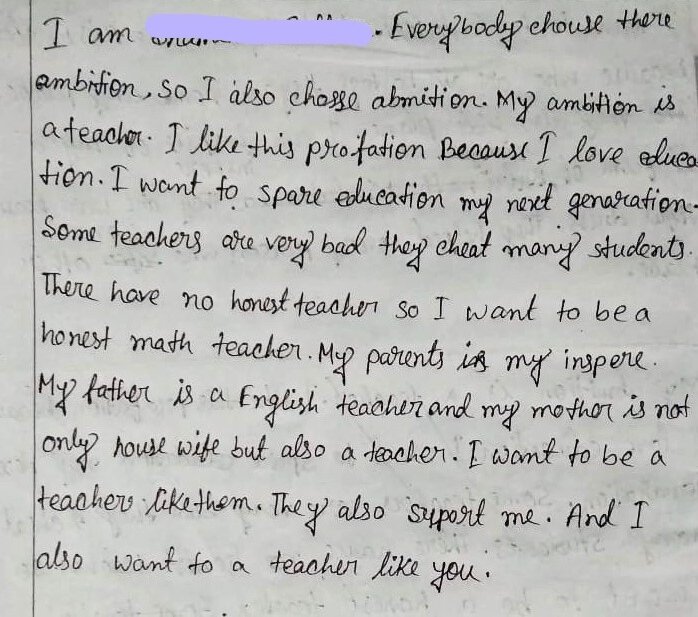 I am . Everybody chouse there
ambition, so I also chosse abmition. My ambition is
a teacher. I like this profation Because I love educa
tion. I want to spare education my next genaration.
Some teachers are very bad they cheat many students.
There have no honest teacher so I want to be a
honest math teacher. My parents is my inspere.
My father is a English teacher and my mother is not
only house wife but also a teacher. I want to be a
teacher like them. They also suport me. And I
also want to a teacher like you.